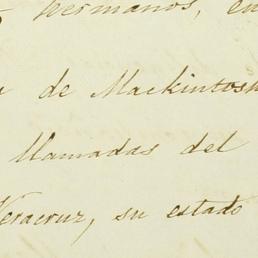 hermanos, en
de Mackintosh
llamadas del
Veracruz, su estado